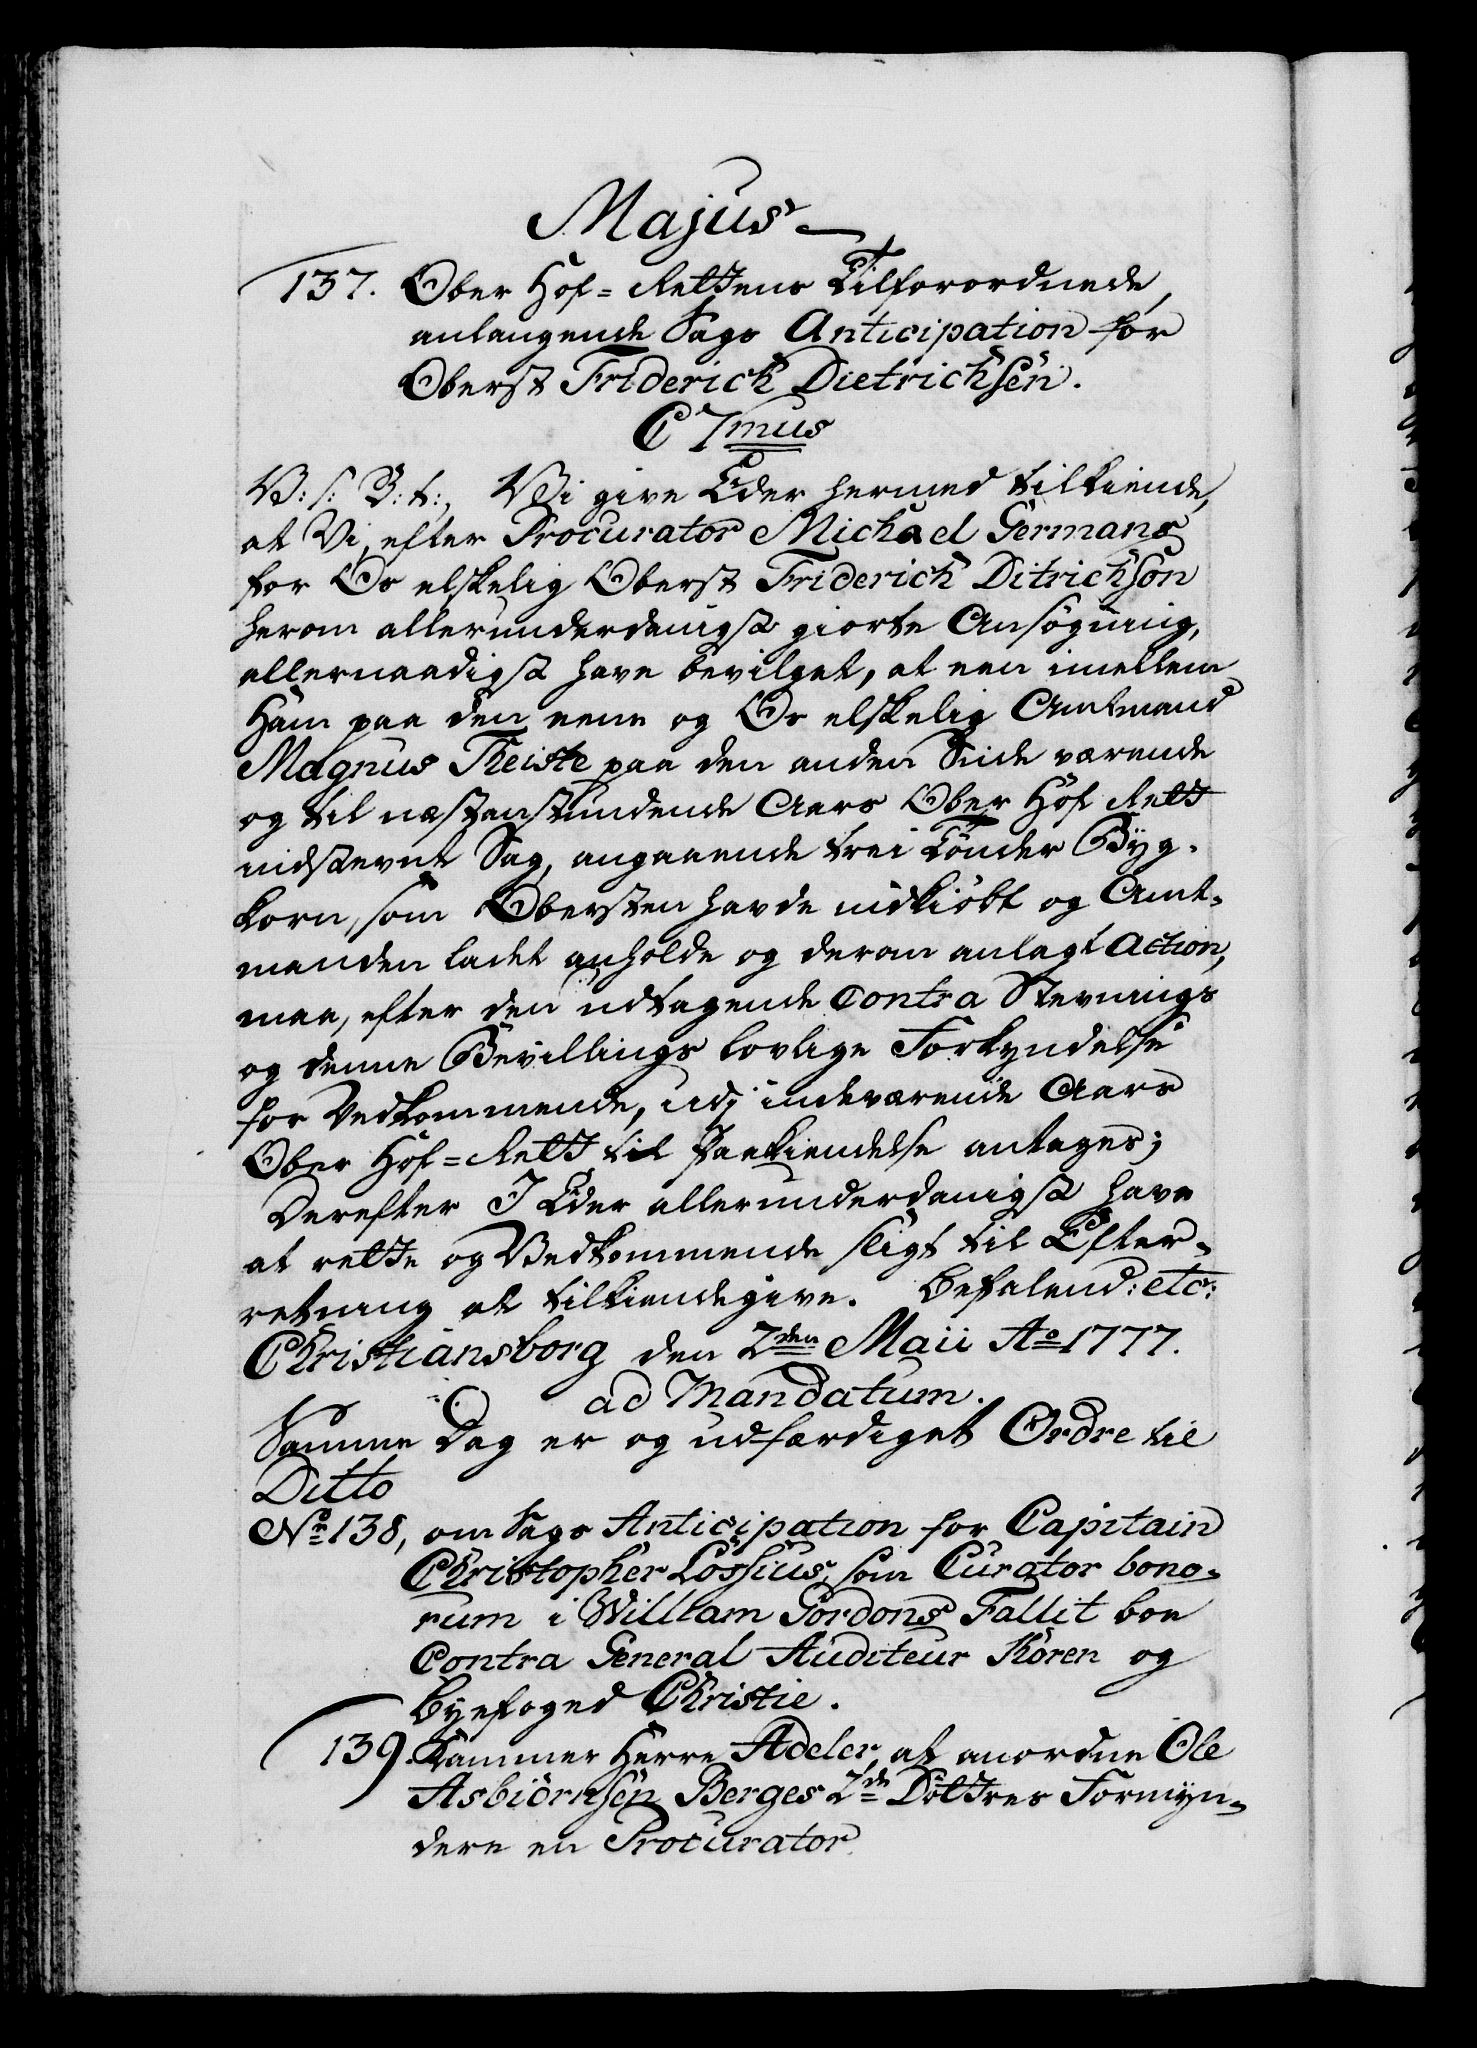 Majus
137. Ober Hof=Rettens Tilforordnede,
anlangende Sags Anticipation for
Oberst Friderich Dietrichsen.
C 7mus
V: s: B: t:, Vi give Eder hermed tilkiende,
at Vi, efter Procurator Michael Germans
for Os elskelig Oberst Friderich Ditrichson
herom allerunderdanigst giorte Ansøgning,
allernaadigst have bevilget, at een imellem
Ham paa den eene og Os elskelig Amtmand
Magnus Theiste paa den anden Side værende
og til næstanstundende Aars Ober Hof Rett
indstevnt Sag, angaaende trei Tønder Byg-
korn, som Obersten havde indkiøbt og Amt-
manden ladet anholde og derom anlagt Action,
maa, efter den udtagende Contra Stevnings
og denne Bevillings lovlige Forkyndelse
for Vedkommende, udj indeværende Aars
Ober Hof=Rett til Paakiendelse antages;
Derefter I Eder allerunderdanigst have
at rette og Vedkommende sligt til Efter-
retning at tilkiendegive. Befalend: etc:
Christiansborg den 2den Maii Ao 1777.
ad Mandatum.
Samme Dag er og udfærdiget Ordre til
Ditto
No 138, om Sags Anticipation for Capitain
Christopher Lossius, som Curator bono-
rum i William Gordons Fallit boe
Contra General Auditeur Koren og
Byefoged Christie.
139. Kammer Herre Adeler, at anordne Ole
Asbiörnsen Berges 2de Døttres Formyn-
dere en Procurator.